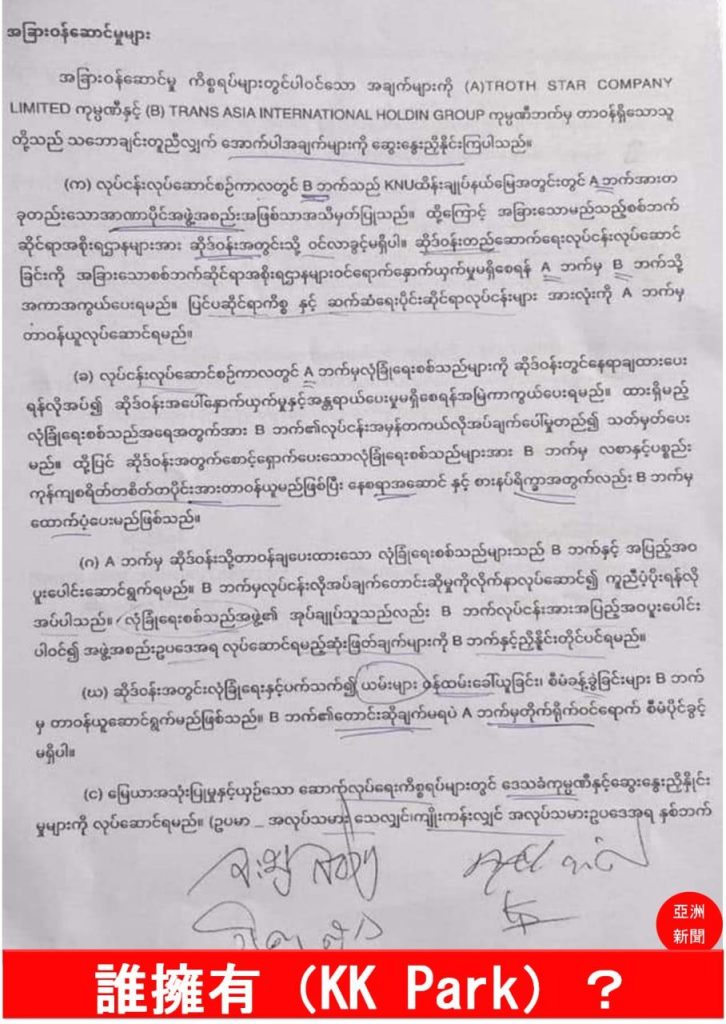 အခြားဝန်ဆောင်မှုများ
အခြားဝန်ဆောင်မှု ကိစ္စရပ်များတွင်ပါဝင်သော အချက်များကို (A)TROTH STAR COMPANY
LIMITED ကုမ္ပဏီနှင့် (B) TRANS ASIA INTERNATIONAL HOLDIN GROUP ကုမ္ပဏီဘက်မှ တာဝန်ရှိသောသူ
တို့သည် သဘောချင်းတူညီလျှက် အောက်ပါအချက်များကို ဆွေးနွေးညှိနိုင်းကြပါသည်။
(က) လုပ်ငန်းလုပ်ဆောင်စဉ်ကာလတွင် B ဘက်သည် KNUထိန်းချုပ်နယ်မြေအတွင်းတွင် A ဘက်အားတ
ခုတည်းသောအာဏာပိုင်အဖွဲ့အစည်းအဖြစ်သာအသိမှတ်ပြုသည်။ ထို့ကြောင့် အခြားသောမည်သည့်စစ်ဘက်
ဆိုင်ရာအစိုးရဌာနများအား ဆိုဒ်ဝန်းအတွင်းသို့ ဝင်လာခွင့်မရှိပါ။ ဆိုဒ်ဝန်းတည်ဆောက်ရေးလုပ်ငန်းလုပ်ဆောင်
ခြင်းကို အခြားသောစစ်ဘက်ဆိုင်ရာအစိုးရဌာနများဝင်ရောက်နှောက်ယှက်မှုမရှိစေရန် A ဘက်မှ B ဘက်သို့
အကာအကွယ်ပေးရမည်။ ပြင်ပဆိုင်ရာကိစ္စ နှင့် ဆက်ဆံရေးပိုင်းဆိုင်ရာလုပ်ငန်းများ အားလုံးကို A ဘက်မှ
တာဝန်ယူလုပ်ဆောင်ရမည်။
(ခ) လုပ်ငန်းလုပ်ဆောင်စဉ်ကာလတွင် A ဘက်မှလုံခြုံရေးစစ်သည်များကို ဆိုဒ်ဝန်းတွင်နေရာချထားပေး
ရန်လိုအပ်၍ ဆိုဒ်ဝန်းအပေါ်နှောက်ယှက်မှုနှင့်အန္တရာယ်ပေးမှုမရှိစေရန်အမြဲကာကွယ်ပေးရမည်။ ထားရှိမည့်
လုံခြုံရေးစစ်သည်အရေအတွက်အား B ဘက်၏လုပ်ငန်းအမှန်တကယ်လိုအပ်ချက်ပေါ်မူတည်၍ သတ်မှတ်ပေး
မည်။ ထို့ပြင် ဆိုဒ်ဝန်းအတွက်စောင့်ရှောက်ပေးသောလုံခြုံရေးစစ်သည်များအား B ဘက်မှ လစာနှင့်ပစ္စည်း
ကုန်ကျစရိတ်တစိတ်တပိုင်းအားတာဝန်ယူမည်ဖြစ်ပြီး နေစရာအဆောင် နှင့် စားနပ်ရိက္ခာအတွက်လည်း B ဘက်မှ
ထောက်ပံ့ပေးမည်ဖြစ်သည်။
(ဂ) A ဘက်မှ ဆိုဒ်ဝန်းသို့တာဝန်ချပေးထားသော လုံခြုံရေးစစ်သည်များသည် B ဘက်နှင့် အပြည့်အဝ
ပူးပေါင်းဆောင်ရွက်ရမည်။ B ဘက်မှလုပ်ငန်းလိုအပ်ချက်တောင်းဆိုမှုကိုလိုက်နာလုပ်ဆောင်၍ ကူညီပံ့ပိုးရန်လို
အပ်ပါသည်။ လုံခြုံရေးစစ်သည်အဖွဲ့၏ အုပ်ချုပ်သူသည်လည်း B ဘက်လုပ်ငန်းအားအပြည့်အဝပူးပေါင်း
ပါဝင်၍ အဖွဲ့အစည်းဥပဒေအရ လုပ်ဆောင်ရမည့်ဆုံးဖြတ်ချက်များကို B ဘက်နှင့်ညှိနှိုင်းတိုင်ပင်ရမည်။
(ဃ) ဆိုဒ်ဝန်းအတွင်းလုံခြုံရေးနှင့်ပက်သက်၍ ယမ်းများ ဝန်ထမ်းခေါ်ယူခြင်း၊ စီမံခန့်ခွဲခြင်းများ B ဘက်
မှ တာဝန်ယူဆောင်ရွက်မည်ဖြစ်သည်။ B ဘက်၏တောင်းဆိုချက်မရပဲ A ဘက်မှတိုက်ရိုက်ဝင်ရောက် စီမံပိုင်ခွင့်
မရှိပါ။
(င) မြေယာအသုံးပြုမှုနှင့်ယှဉ်သော ဆောက်လုပ်ရေးကိစ္စရပ်များတွင် ဒေသခံကုမ္ပဏီနှင့်ဆွေးနွေးညှိနှိုင်း
မှုများကို လုပ်ဆောင်ရမည်။ (ဥပမာ _ အလုပ်သမား သေလျှင်၊ကျိုးကန်းလျှင် အလုပ်သမားဥပဒေအရ နှစ်ဘက်
亞洲
新聞
誰擁有 (KK Park) ？